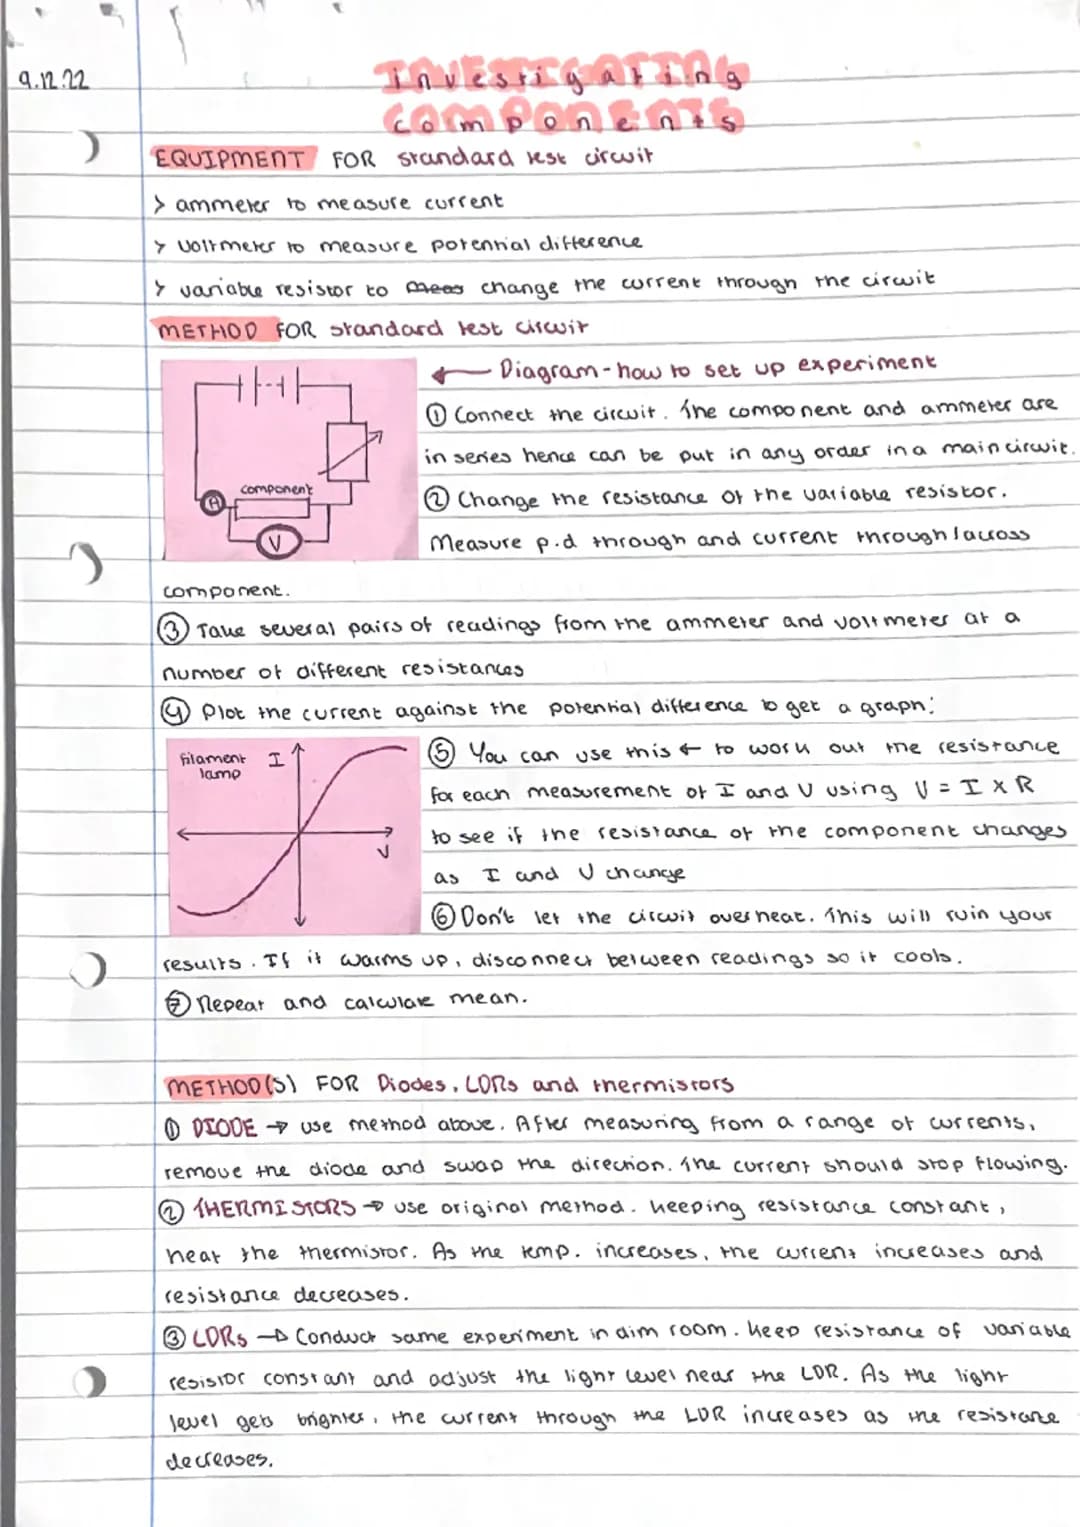 9.12.22
investigating
components
EQUIPMENT FOR standard test circuit
> ammeter to measure current
> voltmeter to measure potential difference
> variable resistor to meas change the current through the circuit
METHOD FOR standard test circuit
← Diagram - how to set up experiment
① Connect the circuit. The component and ammeter are
in series hence can be put in any order in a main circuit.
component
A
V
② Change the resistance of the variable resistor.
Measure p.d through and current through/across
component.
③ Take several pairs of readings from the ammeter and voltmeter at a
number of different resistances
④ Plot the current against the potential difference to get a graph:
filament
lamp
I
V
⑤ You can use this ← to work out the resistance
for each measurement of I and V using V = I X R
to see if the resistance of the component changes
as I and V change
⑥ Don't let the circuit overheat. This will ruin your
results. If it warms up, disconnect between readings so it cools.
⑦ Repeat and calculate mean.
METHOD(S) FOR Diodes, LDRs and thermistors
① DIODE → use method above. After measuring from a range of currents,
remove the diode and swap the direction. The current should stop flowing.
② THERMISTORS → use original method. Keeping resistance constant,
heat the thermistor. As the temp. increases, the current increases and
resistance decreases.
③ LDRs → Conduct same experiment in dim room. Keep resistance of variable
resistor constant and adjust the light level near the LDR. As the light
level gets brighter, the current through the LDR increases as the resistance
decreases.